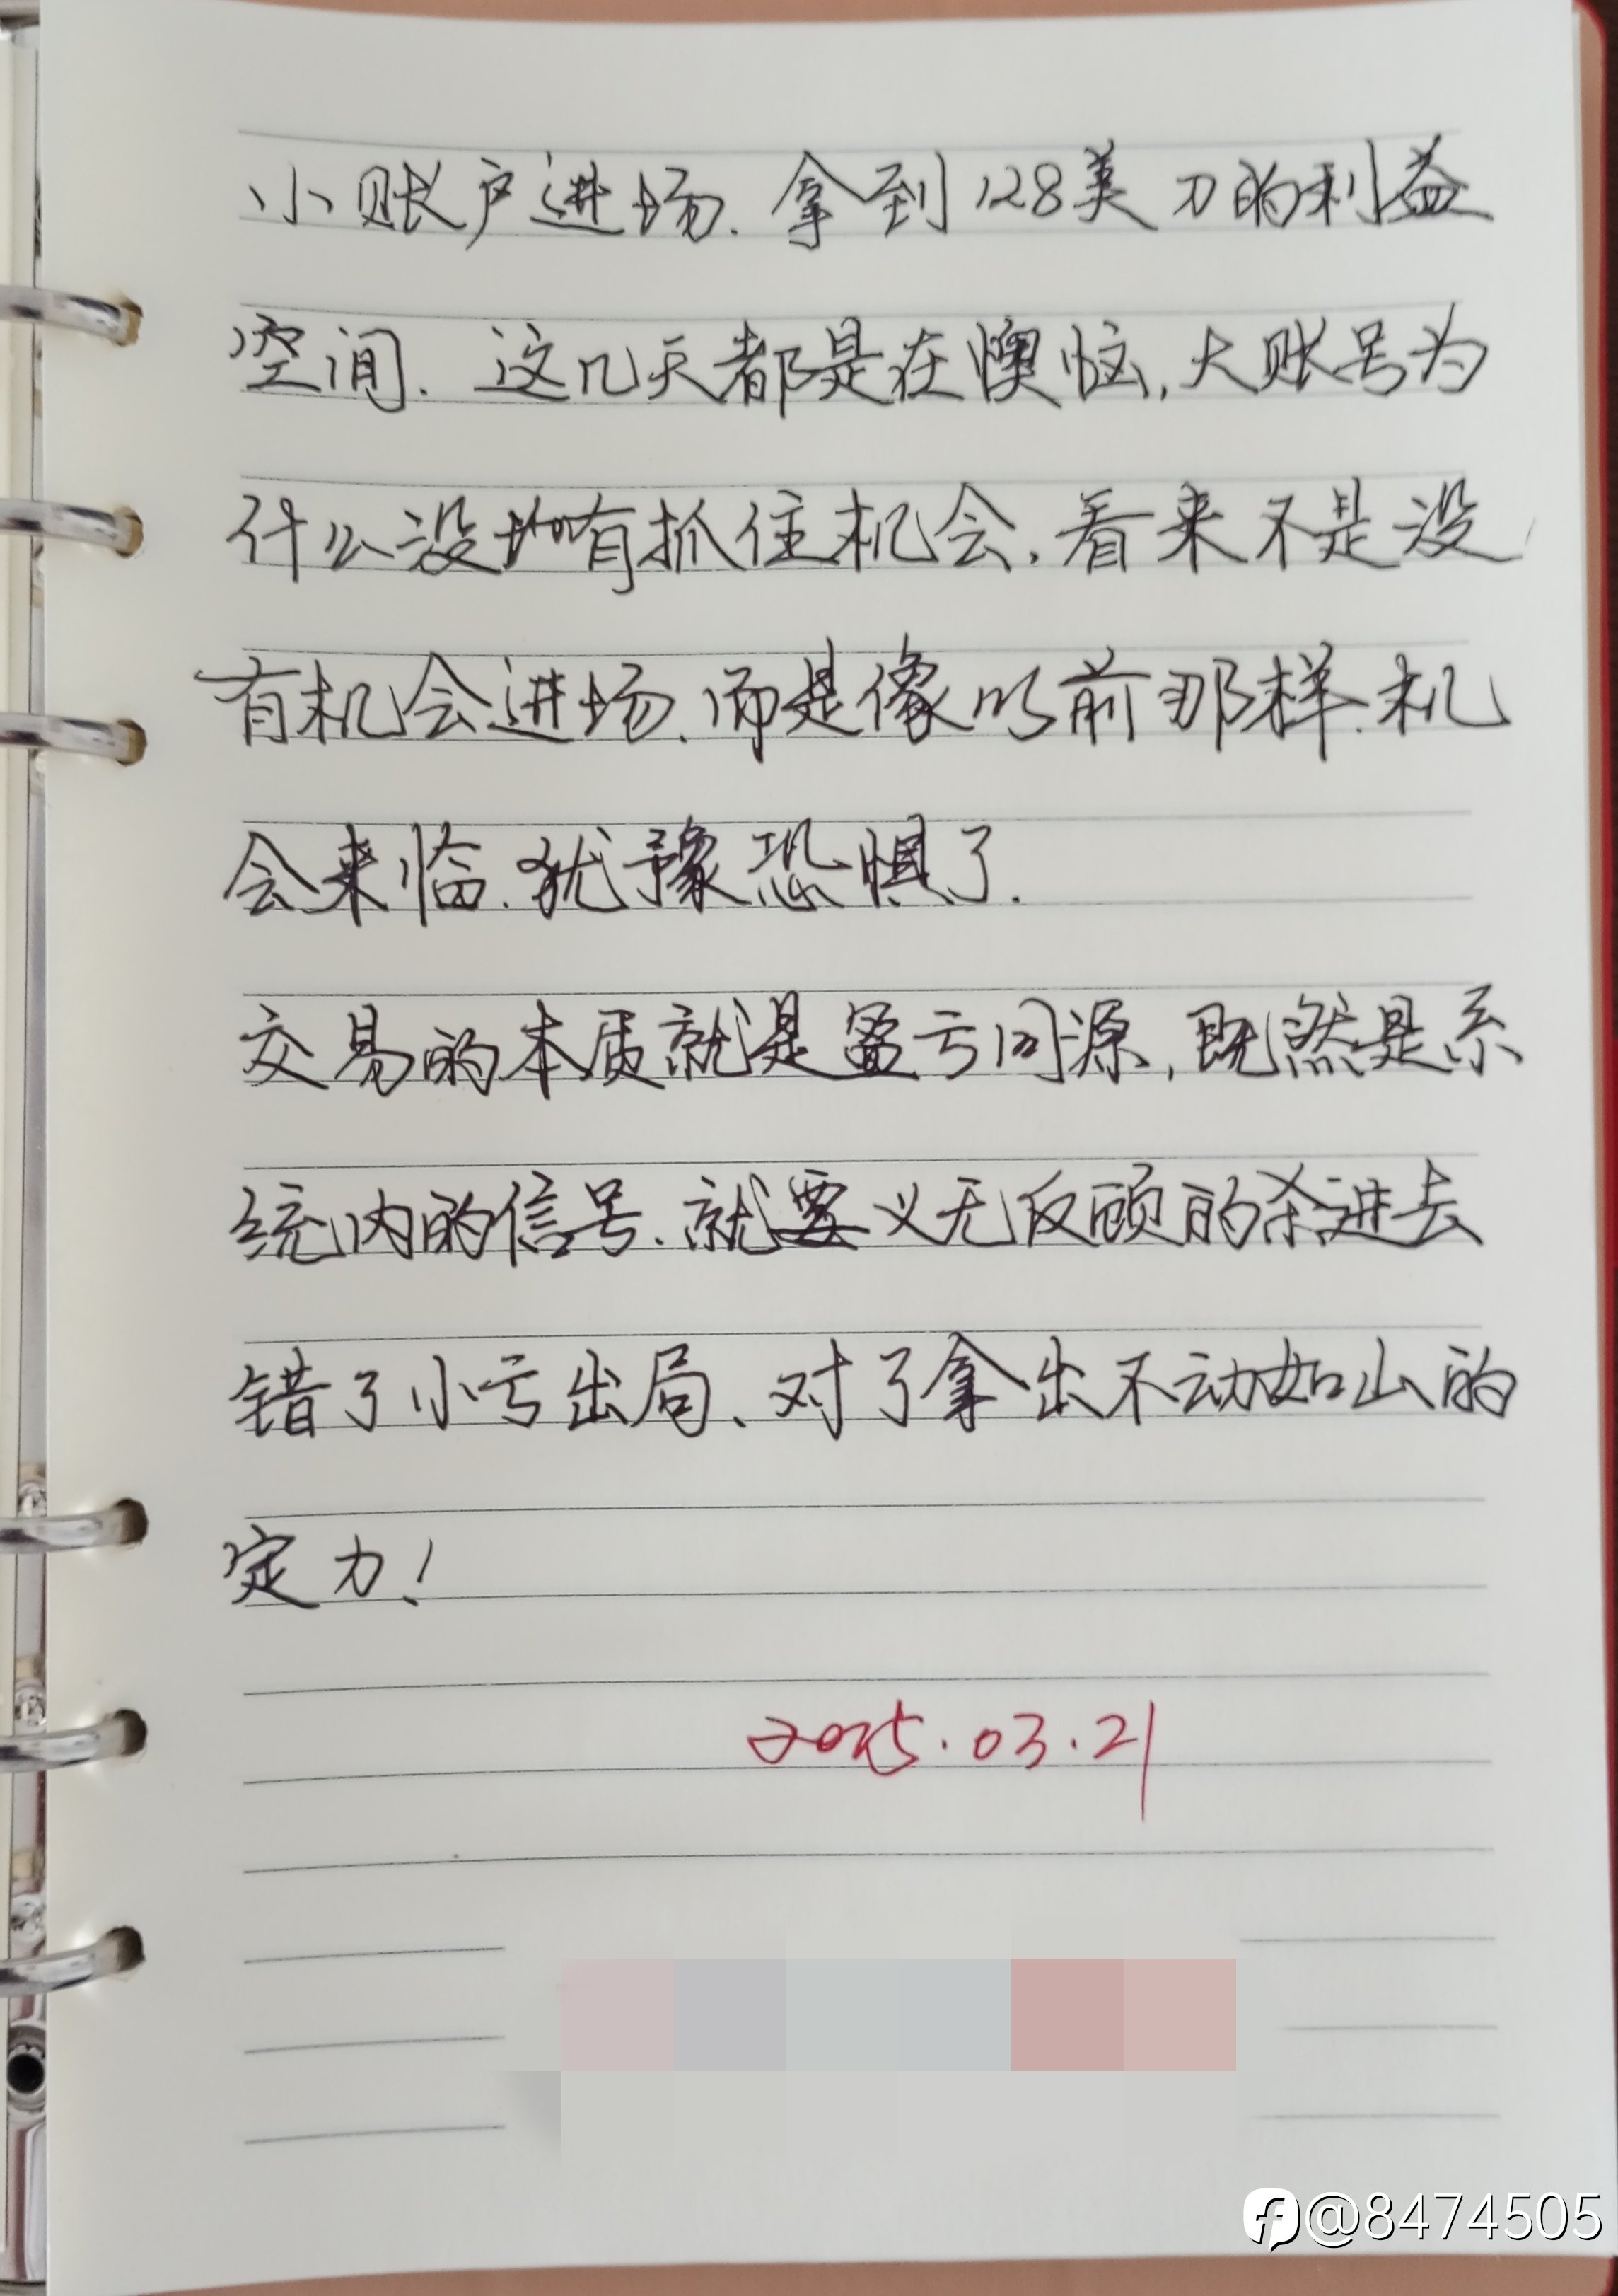 小账户进场.拿到128美刀的利益
空间.这几天都是在懊恼,大账号为
什么没有抓住机会.看来不是没
有机会进场.而是像以前那样.机
会来临.犹豫恐惧了.
交易的本质就是盈亏同源,既然是系
统内的信号.就要义无反顾的杀进去
错了小亏出局、对了拿出不动如山的
定力!
2025.03.21
@8474505